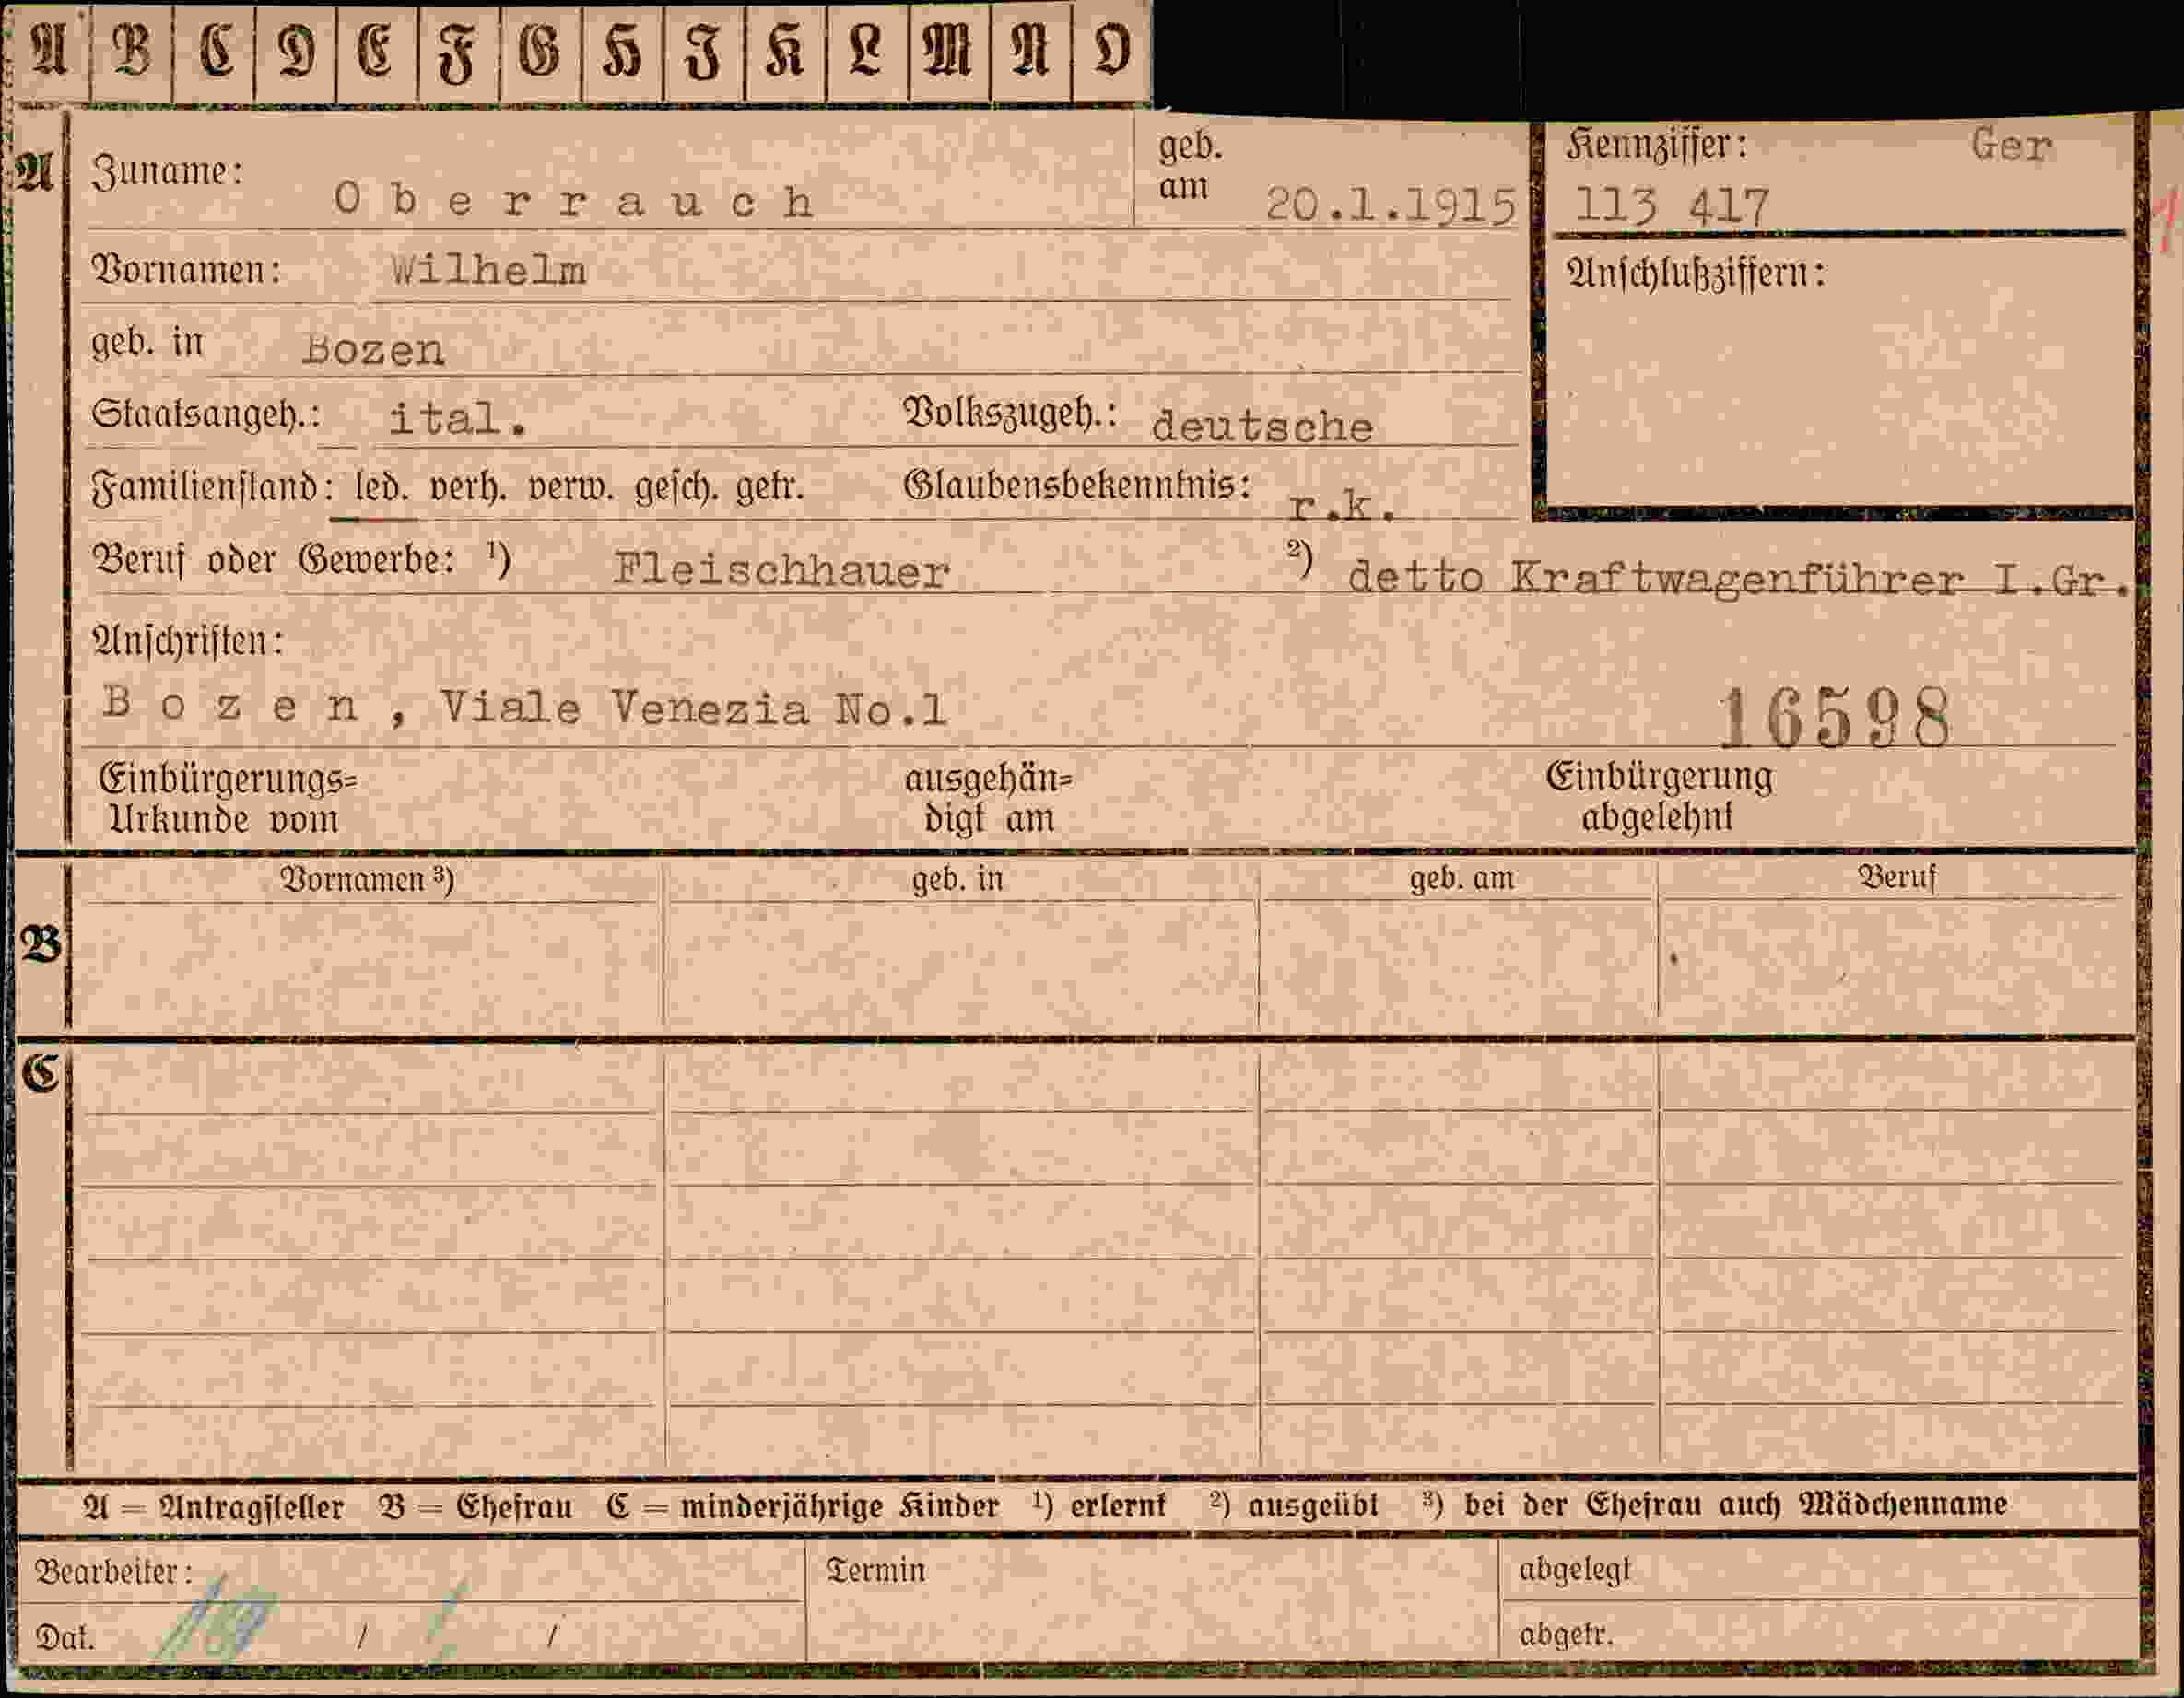 A B C D E F G H I K L M N O
A Zuname: Oberrauch geb. am 20.1.1915 Kennziffer: Ger
113 417
Vornamen: Wilhelm Anschlußziffern:
geb. in Bozen
Staatsangeh.: ital. Volkszugeh.: deutsche
Familienstand: led. verh. verw. gesch. getr. Glaubensbekenntnis: r.k.
Beruf oder Gewerbe: ¹) Fleischhauer ²) detto Kraftwagenführer I.Gr.
Anschriften:
Bozen, Viale Venezia No.1 16598
Einbürgerungs= ausgehän= Einbürgerung
Urkunde vom digt am abgelehnt
Vornamen ³) geb. in geb. am Beruf
B
C
A = Antragsteller B = Ehefrau C = minderjährige Kinder ¹) erlernt ²) ausgeübt ³) bei der Ehefrau auch Mädchenname
Bearbeiter: Termin abgelegt
Dat. / / abgetr.